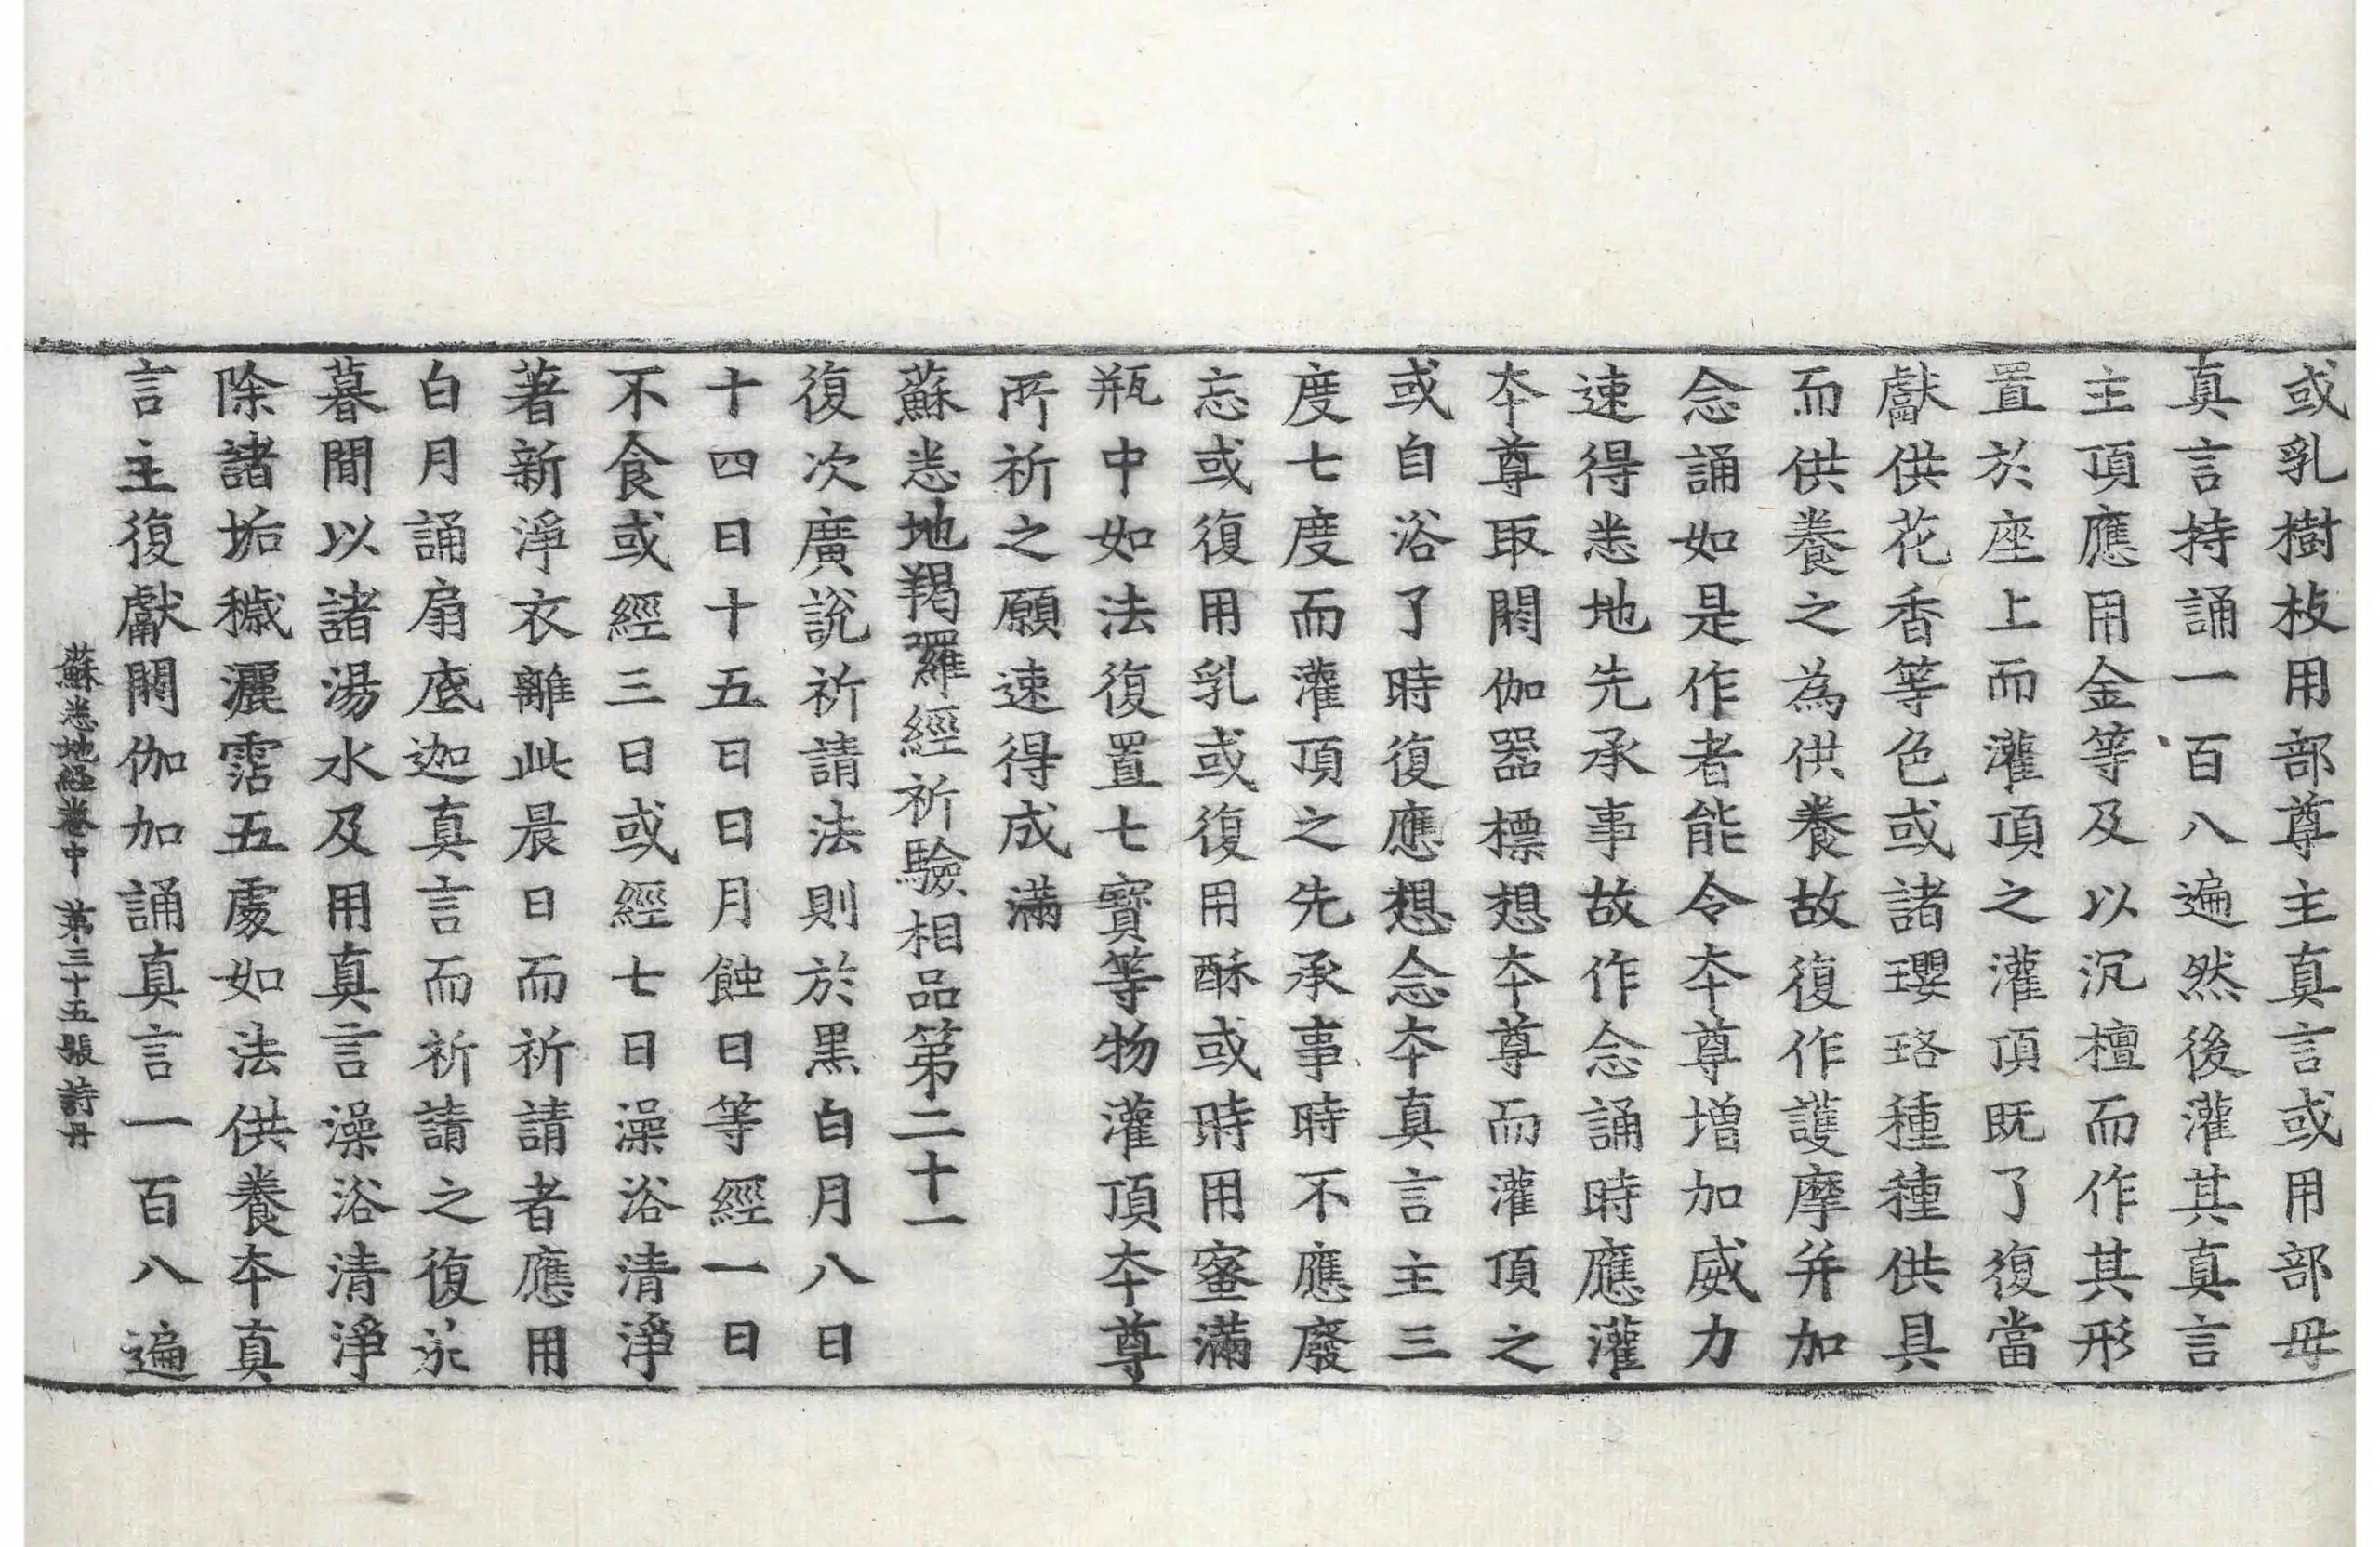 或乳樹枝用部尊主真言或用部母
真言持誦一百八遍然後灌其真言
主頂應用金等及以沉檀而作其形
置於座上而灌頂之灌頂既了復當
獻供花香等色或諸瓔珞種種供具
而供養之為供養故復作護摩并加
念誦如是作者能令夲尊增加威力
速得悉地先承事故作念誦時應灌
夲尊取閼伽器標想夲尊而灌頂之
或自浴了時復應想念夲真言主三
度七度而灌頂之先承事時不應廢
忘或復用乳或復用酥或時用蜜滿
瓶中如法復置七寶等物灌頂夲尊
所祈之願速得成滿
蘇悉地羯羅經祈驗相品第二十一
復次廣說祈請法則於黑白月八日
十四日十五日日月蝕日等經一日
不食或經三日或經七日澡浴清淨
著新淨衣離此晨日而祈請者應用
白月誦扇底迦真言而祈請之復於
暮間以諸湯水及用真言澡浴清淨
除諸垢穢灑霑五處如法供養夲真
言主復獻閼伽加誦真言一百八遍
蘇悉地經卷中 第三十五張 詩丹